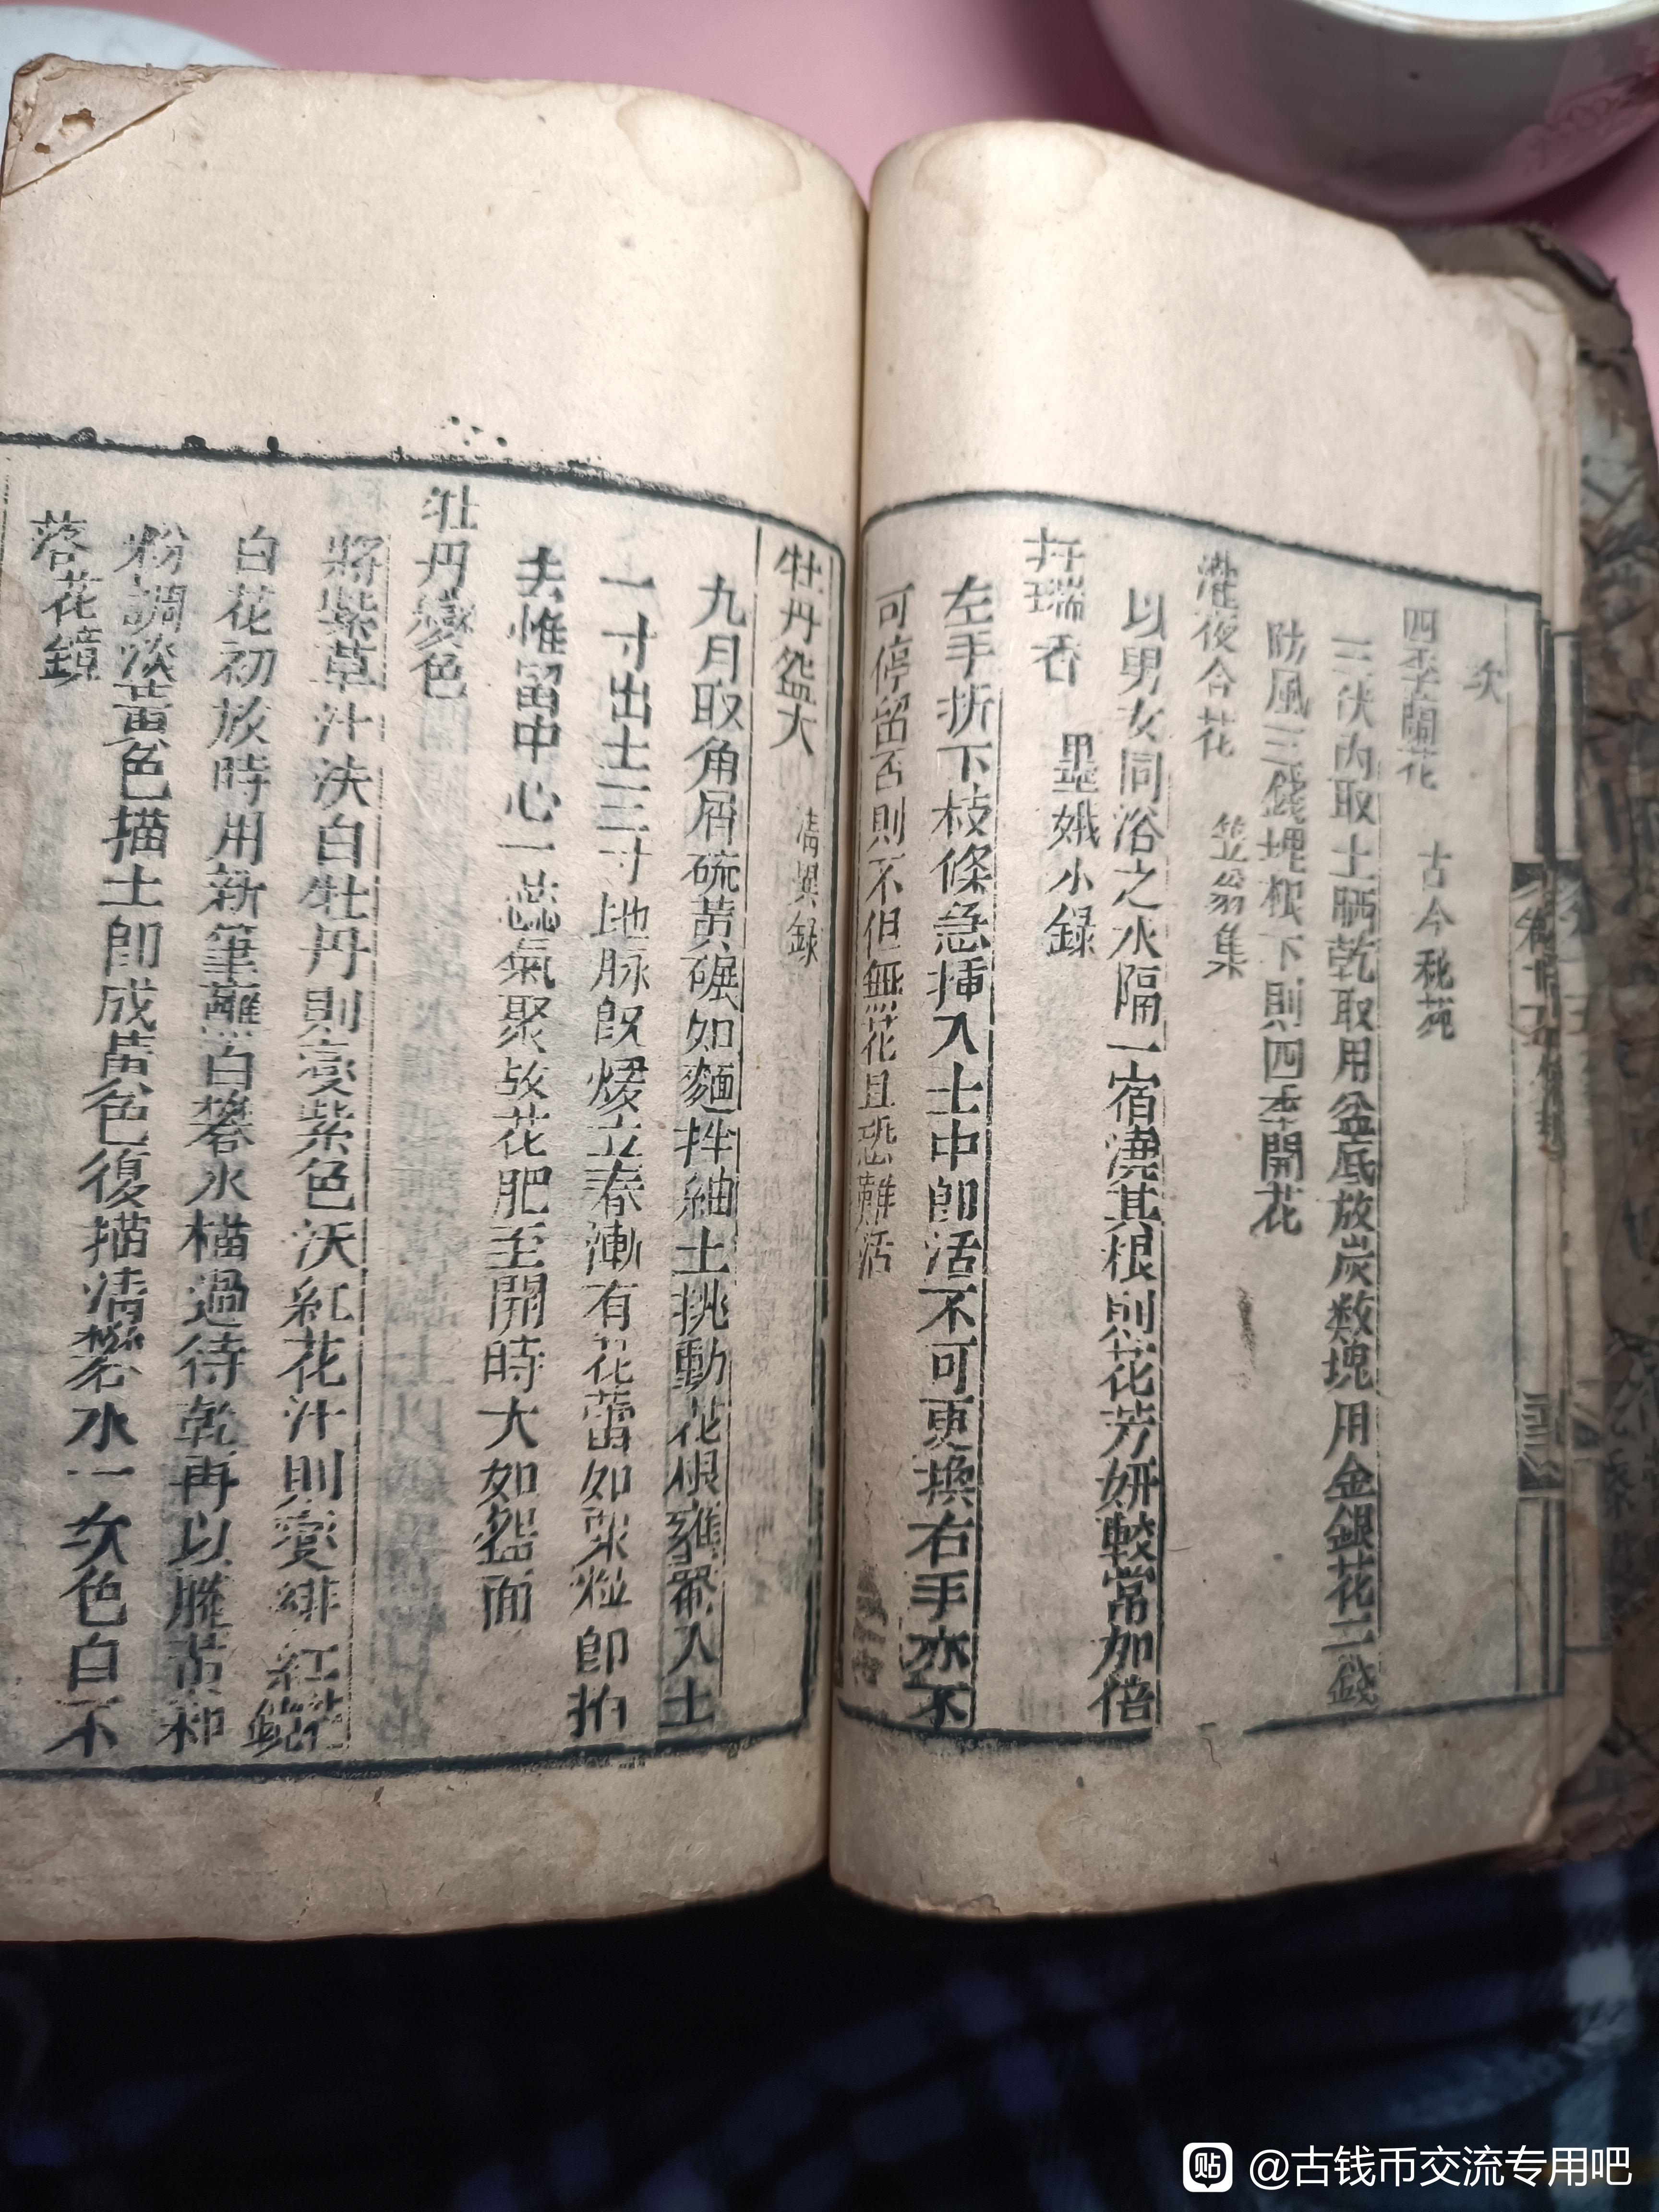 次
四季蘭花 古今秘苑
三伏內取土晒乾取用盆底放炭数塊用金銀花二錢
防風三錢埋根下則四季開花
灌夜合花 笠翁集
以男女同浴之水隔一宿澆其根則花芳妍較常加倍
扦瑞香 墨娥小錄
左手折下枝條急挿入土中卽活不可更換右手亦不
可停留否則不但無花且恐難活
牡丹盌大 清異録
九月取角屑硫黃碾如麵拌細土挑動花根壅罨入土
一寸出土三寸地脉旣煖立春漸有花蕾如粟粒卽拍
去惟留中心一蕊氣聚故花肥至開時大如盌面
牡丹變色
將紫草汁澆白牡丹則變紫色沃紅花汁則變緋紅花鏡
白花初放時用新筆蘸白礬水描過待乾再以藤黃和
粉調淡黃色描土卽成黃色復描清礬水一次色白不
落花鏡
@古钱币交流专用吧